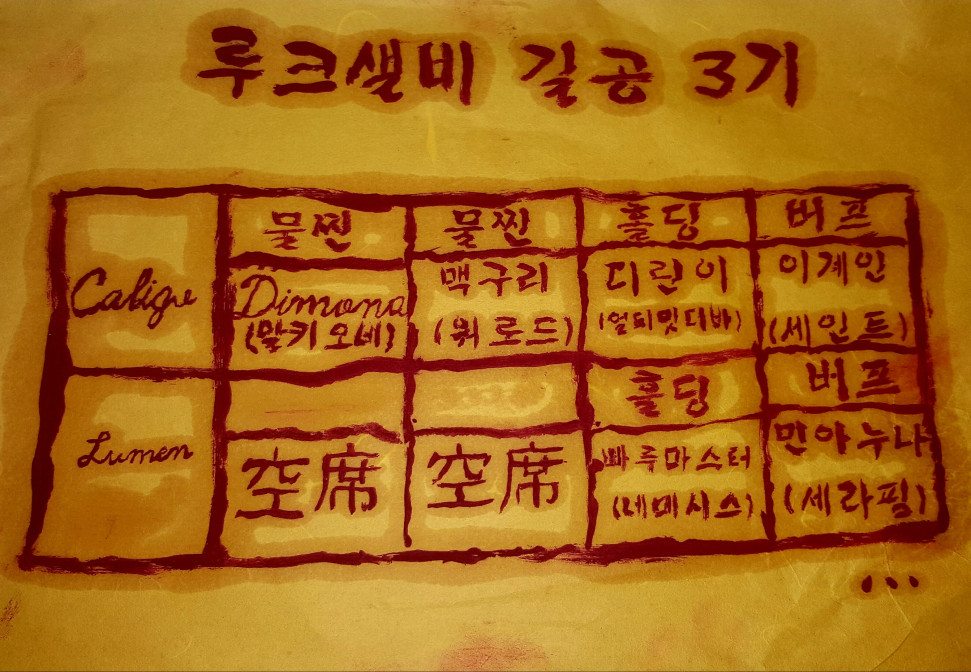 루크쌜비 길공 3기
물찐 물찐 홀딩 버프
Caligue
Dimona 맥구리 디린이 이계인
(말키오네) (워로드) (얼티밋디바) (세인트)
홀딩 버프
Lumen
空席 空席 빠루마스터 민아누나
(네메시스) (세라핌)
...